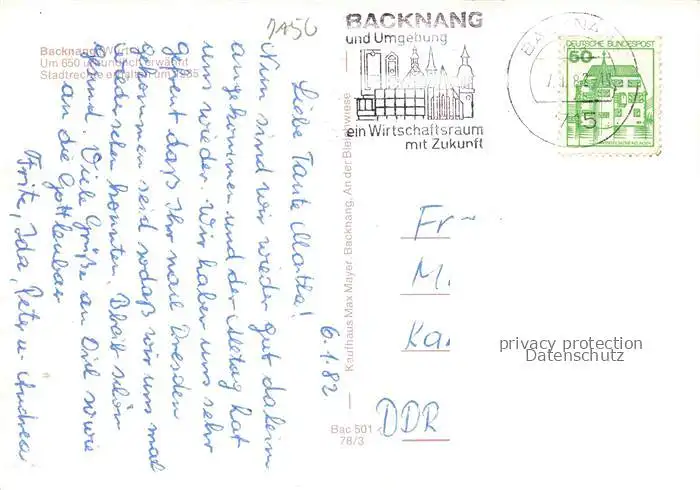 1456
BACKNANG
und Umgebung
ein Wirtschaftsraum
mit Zukunft
DEUTSCHE BUNDESPOST
50
Backnang
Um 650 urkundlich erwähnt
Stadtrechte erhalten um
6.1.82
Liebe Tante Martha!
Nun sind wir wieder gut daheim
angekommen und der Alltag hat
uns wieder. Wir haben uns sehr
gefreut daß Ihr nach Dresden
gekommen seid sodaß wir uns mal
wiedersehen konnten. Bleib schön
gesund Viele Grüße an Dich sowie
an die Gottleubaer
Fritz, Ida, Peter u. Andreas
Kaufhaus Max Mayer, Backnang, An der Bleichwiese
Bac 501
78/3
Fr
M.
Ka
DDR
privacy protection
Datenschutz